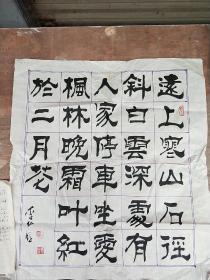 遠上寒山石徑
斜白雲深處有
人家停車坐愛
楓林晚霜叶紅
於二月花